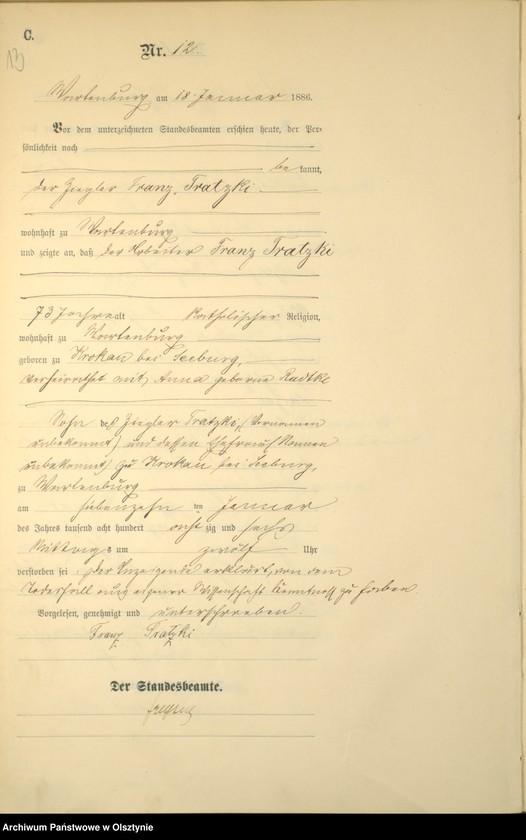 C.
13
Nr. 12.
Wartenburg am 18 Januar 1886.
Vor dem unterzeichneten Standesbeamten erschien heute, der Per-
sönlichkeit nach
be kannt,
der Ziegler Franz Tratzki
wohnhaft zu Wartenburg
und zeigte an, daß der Arbeiter Franz Tratzki
73 Jahre alt Katholischer Religion,
wohnhaft zu Wartenburg
geboren zu Krokau bei Seeburg,
verheirathet mit Anna geborne Radtke
Sohn des Ziegler Tratzki, (Vornamen
unbekannt) und dessen Ehefrau (Namen
unbekannt) zu Krokau bei Seeburg,
zu Wartenburg
am siebenzehn ten Januar
des Jahres tausend acht hundert acht zig und sechs
Mittags um zwölf Uhr
verstorben sei. Der Anzeigende erklärt, von dem
Todesfall aus eigener Wissenschaft Kenntniß zu haben.
Vorgelesen, genehmigt und unterschrieben.
Franz Tratzki
Der Standesbeamte.
Archiwum Państwowe w Olsztynie